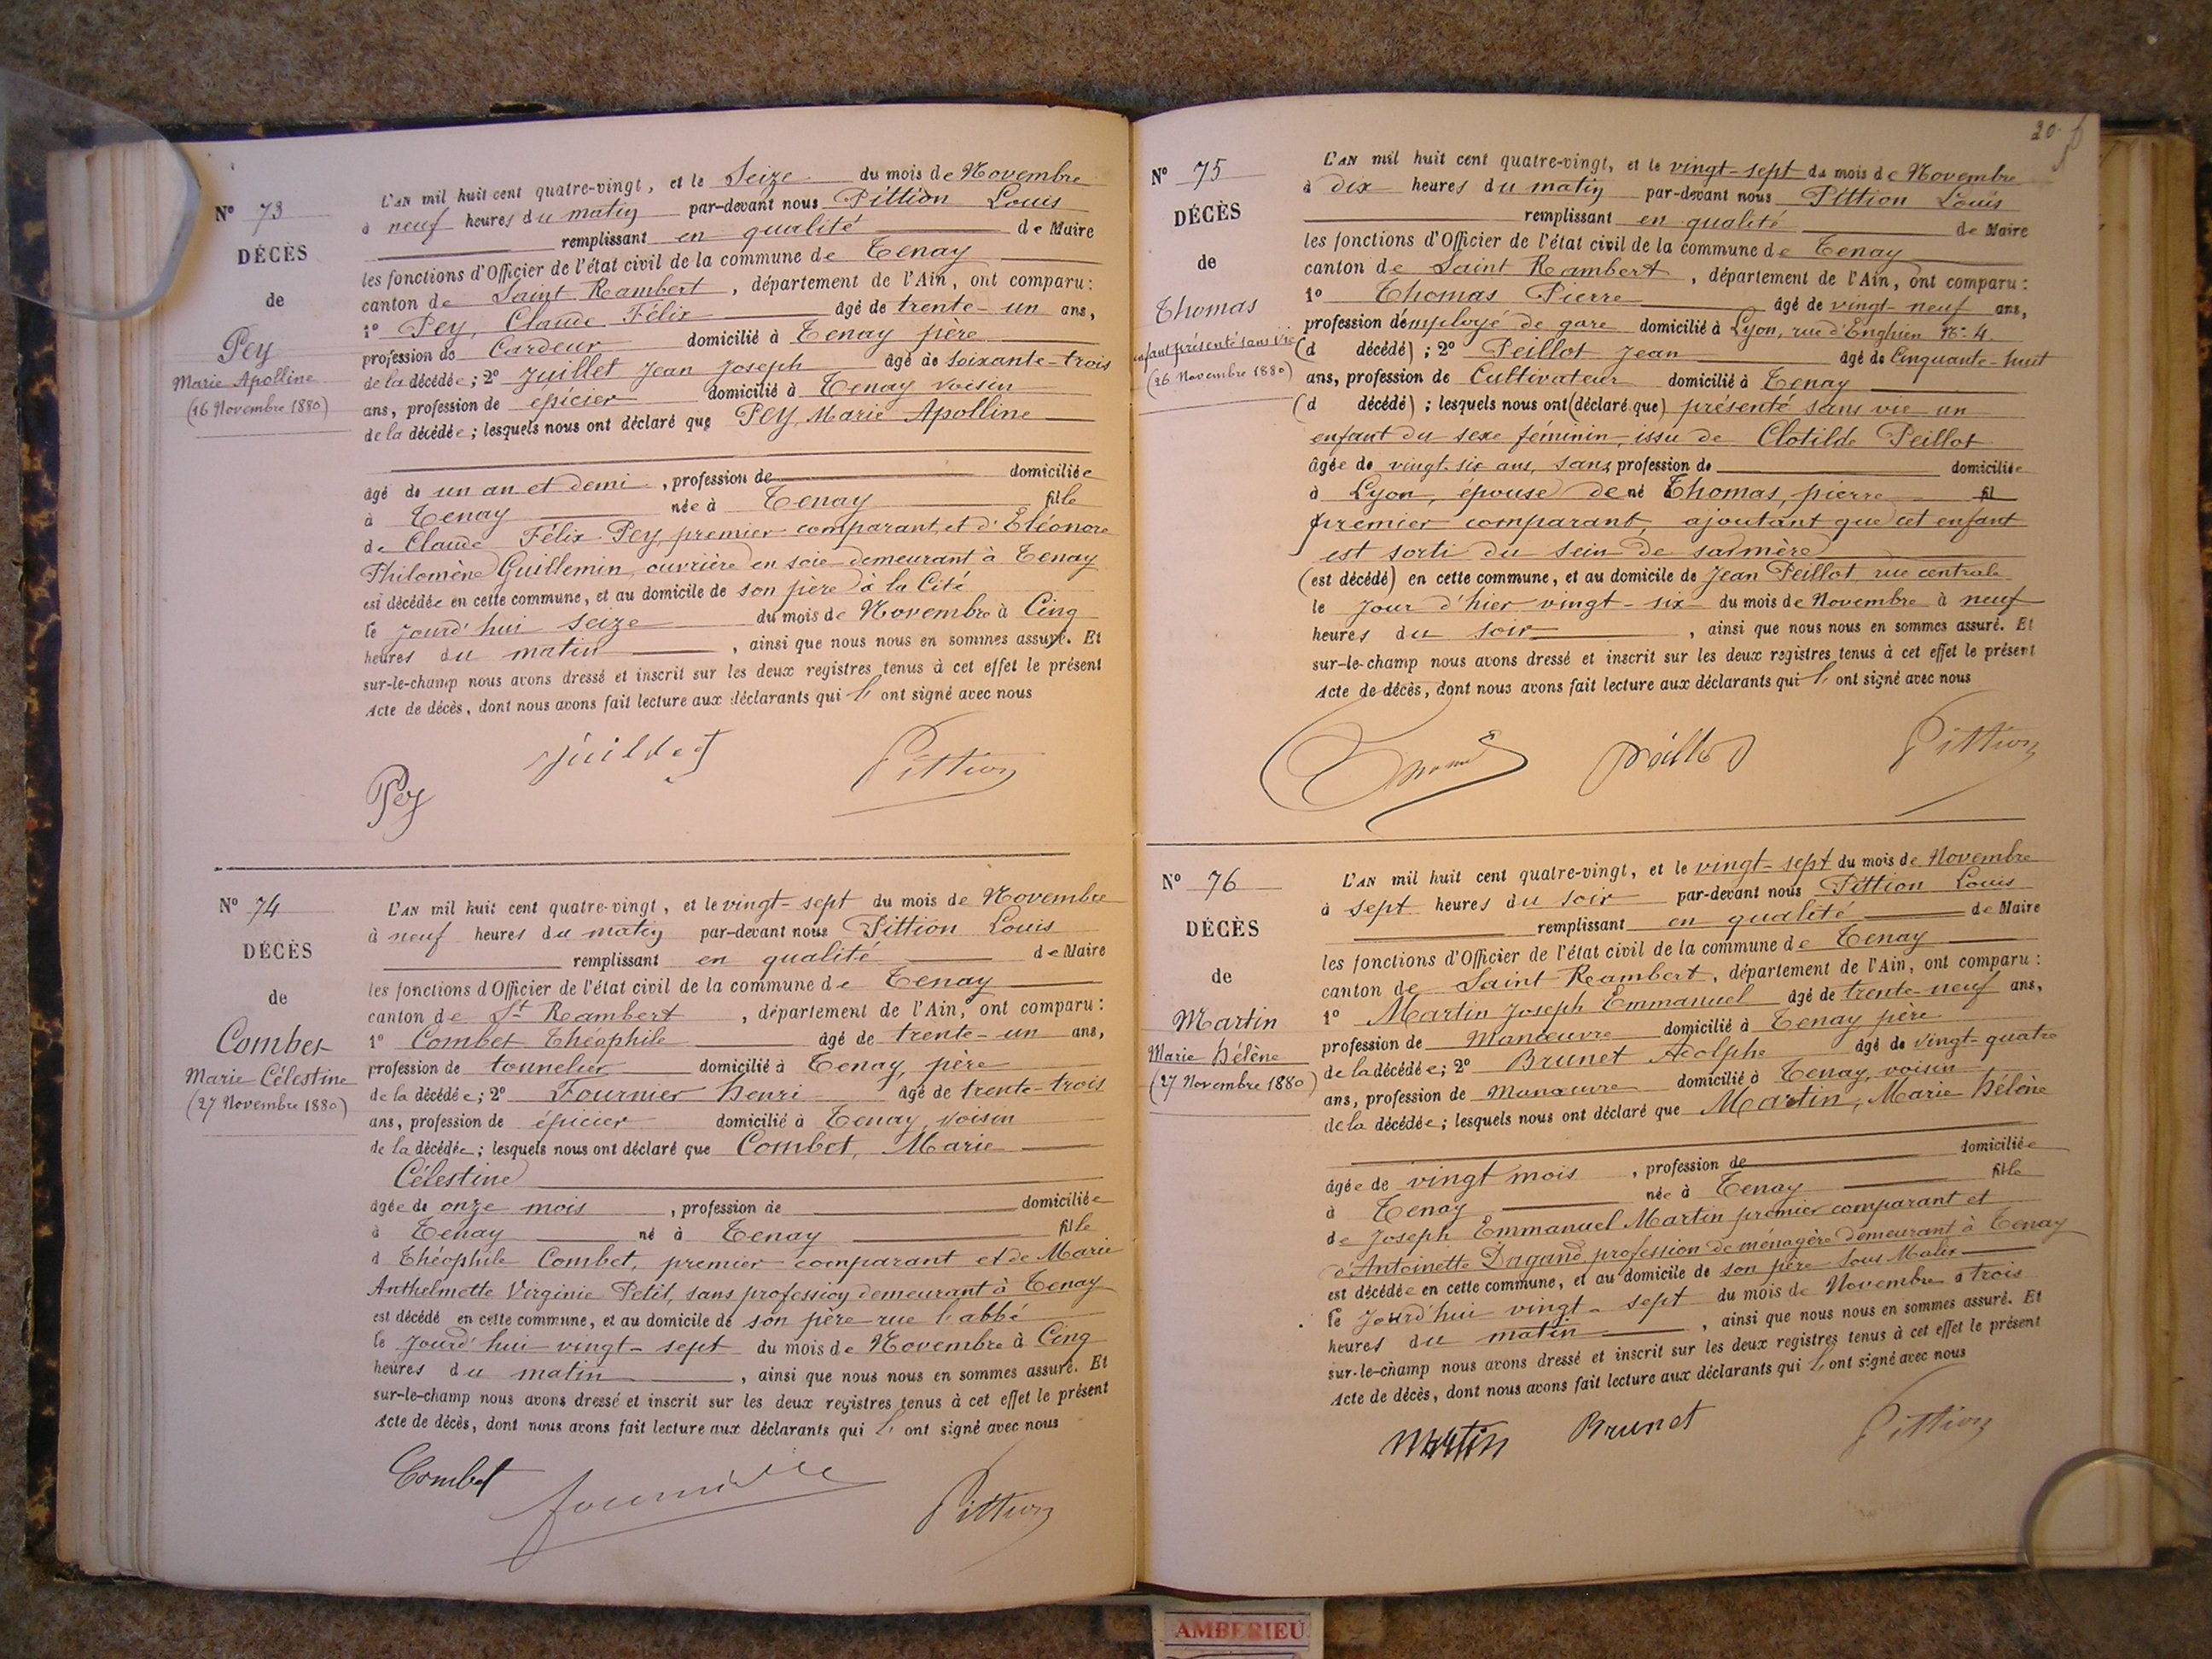 Nº 73
DÉCÈS
de
Pey
Marie Apolline
(16 Novembre 1880)
L'AN mil huit cent quatre-vingt, et le Seize du mois de Novembre
à neuf heures du matin par-devant nous Pittion Louis
remplissant en qualité de Maire
les fonctions d'Officier de l'état civil de la commune de Tenay
canton de Saint Rambert, département de l'Ain, ont comparu:
1º Pey, Claude Félix âgé de trente-un ans,
profession de Cardeur domicilié à Tenay père
de la décédée; 2º Juillet Jean Joseph âgé de soixante-trois
ans, profession de épicier domicilié à Tenay voisin
de la décédée; lesquels nous ont déclaré que Pey, Marie Apolline
âgé de un an et demi, profession de domiciliée
à Tenay née à Tenay fille
de Claude Félix Pey, premier comparant, et d'Eléonore
Philomène Guillemin, ouvrière en soie demeurant à Tenay
est décédée en cette commune, et au domicile de son père à la Cité
le jourd'hui seize du mois de Novembre à Cinq
heures du matin, ainsi que nous nous en sommes assuré. Et
sur-le-champ nous avons dressé et inscrit sur les deux registres tenus à cet effet le présent
Acte de décès, dont nous avons fait lecture aux déclarants qui l' ont signé avec nous
Pey Pittion
Nº 74
DÉCÈS
de
Combet
Marie Célestine
(27 Novembre 1880)
L'AN mil huit cent quatre-vingt, et le vingt-sept du mois de Novembre
à neuf heures du matin par-devant nous Pittion Louis
remplissant en qualité de Maire
les fonctions d'Officier de l'état civil de la commune de Tenay
canton de St Rambert, département de l'Ain, ont comparu:
1º Combet Théophile âgé de trente-un ans,
profession de tonnelier domicilié à Tenay, père
de la décédée; 2º Fournier henri âgé de trente-trois
ans, profession de épicier domicilié à Tenay, voisin
de la décédée; lesquels nous ont déclaré que Combet, Marie
Célestine
âgée de onze mois, profession de domiciliée
à Tenay né à Tenay fille
d Théophile Combet, premier comparant et de Marie
Anthelmette Virginie Petit, sans profession demeurant à Tenay
est décédé en cette commune, et au domicile de son père rue l'abbé
le jourd'hui vingt-sept du mois de Novembre à Cinq
heures du matin, ainsi que nous nous en sommes assuré. Et
sur-le-champ nous avons dressé et inscrit sur les deux registres tenus à cet effet le présent
Acte de décès, dont nous avons fait lecture aux déclarants qui l' ont signé avec nous
Combet Pittion
20
Nº 75
DÉCÈS
de
Thomas
enfant présenté sans vie
(26 Novembre 1880)
L'AN mil huit cent quatre-vingt, et le vingt-sept du mois de Novembre
à dix heures du matin par-devant nous Pittion Louis
remplissant en qualité de Maire
les fonctions d'Officier de l'état civil de la commune de Tenay
canton de Saint Rambert, département de l'Ain, ont comparu:
1º Thomas Pierre âgé de vingt-neuf ans,
profession d'employé de gare domicilié à Lyon, rue d'Enghien Nº 4
(d décédé); 2º Peillot Jean âgé de Cinquante-huit
ans, profession de Cultivateur domicilié à Tenay
(d décédé); lesquels nous ont (déclaré que) présenté sans vie un
enfant du sexe féminin, issu de Clotilde Peillot
âgée de vingt-six ans, sans profession de domiciliée
à Lyon, épouse de né Thomas, pierre fil
premier comparant, ajoutant que cet enfant
est sorti du sein de sa mère
(est décédé) en cette commune, et au domicile de Jean Peillot, rue centrale
le jour d'hier vingt-six du mois de Novembre à neuf
heures du soir, ainsi que nous nous en sommes assuré. Et
sur-le-champ nous avons dressé et inscrit sur les deux registres tenus à cet effet le présent
Acte de décès, dont nous avons fait lecture aux déclarants qui l' ont signé avec nous
Pittion
Nº 76
DÉCÈS
de
Martin
Marie hélène
(27 Novembre 1880)
L'AN mil huit cent quatre-vingt, et le vingt-sept du mois de Novembre
à sept heures du soir par-devant nous Pittion Louis
remplissant en qualité de Maire
les fonctions d'Officier de l'état civil de la commune de Tenay
canton de Saint Rambert, département de l'Ain, ont comparu:
1º Martin Joseph Emmanuel âgé de trente-neuf ans,
profession de Manœuvre domicilié à Tenay père
de la décédée; 2º Brunet Adolphe âgé de vingt-quatre
ans, profession de Manœuvre domicilié à Tenay, voisin
de la décédée; lesquels nous ont déclaré que Martin, Marie hélène
âgée de vingt mois, profession de domiciliée
à Tenay née à Tenay fille
de Joseph Emmanuel Martin premier comparant et
d'Antoinette Dagand profession de ménagère demeurant à Tenay
est décédée en cette commune, et au domicile de son père sous Malix
le jourd'hui vingt-sept du mois de Novembre à trois
heures du matin, ainsi que nous nous en sommes assuré. Et
sur-le-champ nous avons dressé et inscrit sur les deux registres tenus à cet effet le présent
Acte de décès, dont nous avons fait lecture aux déclarants qui l' ont signé avec nous
Martin Brunet Pittion
AMBERIEU